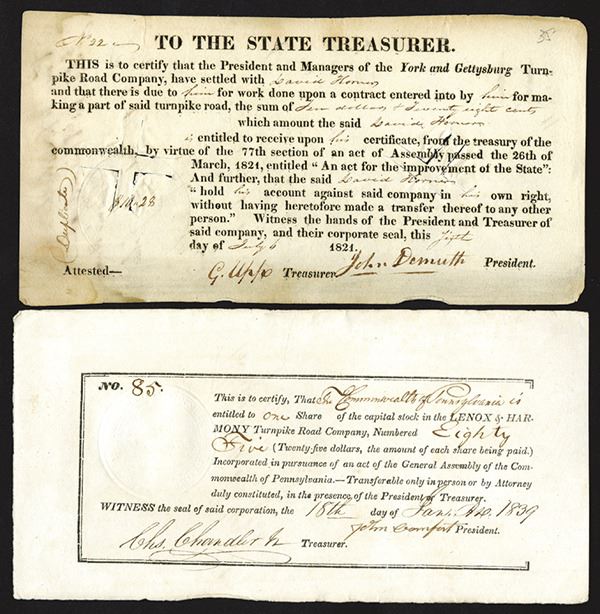 No 22
35
TO THE STATE TREASURER.
THIS is to certify that the President and Managers of the York and Gettysburg Turn-
pike Road Company, have settled with David
and that there is due to him for work done upon a contract entered into by him for ma-
king a part of said turnpike road, the sum of Ten dollars & Twenty eight cents
which amount the said David
is entitled to receive upon his certificate, from the treasury of the
commonwealth, by virtue of the 77th section of an act of Assembly passed the 26th of
March, 1821, entitled "An act for the improvement of the State":
And further, that the said David
"hold his account against said company in his own right,
without having heretofore made a transfer thereof to any other
person." Witness the hands of the President and Treasurer of
said company, and their corporate seal, this
day of July 1821.
Duplicate
Attested— G. Upp Treasurer John Demuth President.
No. 85.
This is to certify, That The Commonwealth of Pennsylvania is
entitled to one Share of the capital stock in the LENOX & HAR-
MONY Turnpike Road Company, Numbered Eighty
Five (Twenty-five dollars, the amount of each share being paid.)
Incorporated in pursuance of an act of the General Assembly of the Com-
monwealth of Pennsylvania.—Transferable only in person or by Attorney
duly constituted, in the presence of the President or Treasurer.
WITNESS the seal of said corporation, the 18th day of 1839
John Comfort President.
Chs. Chandler Treasurer.